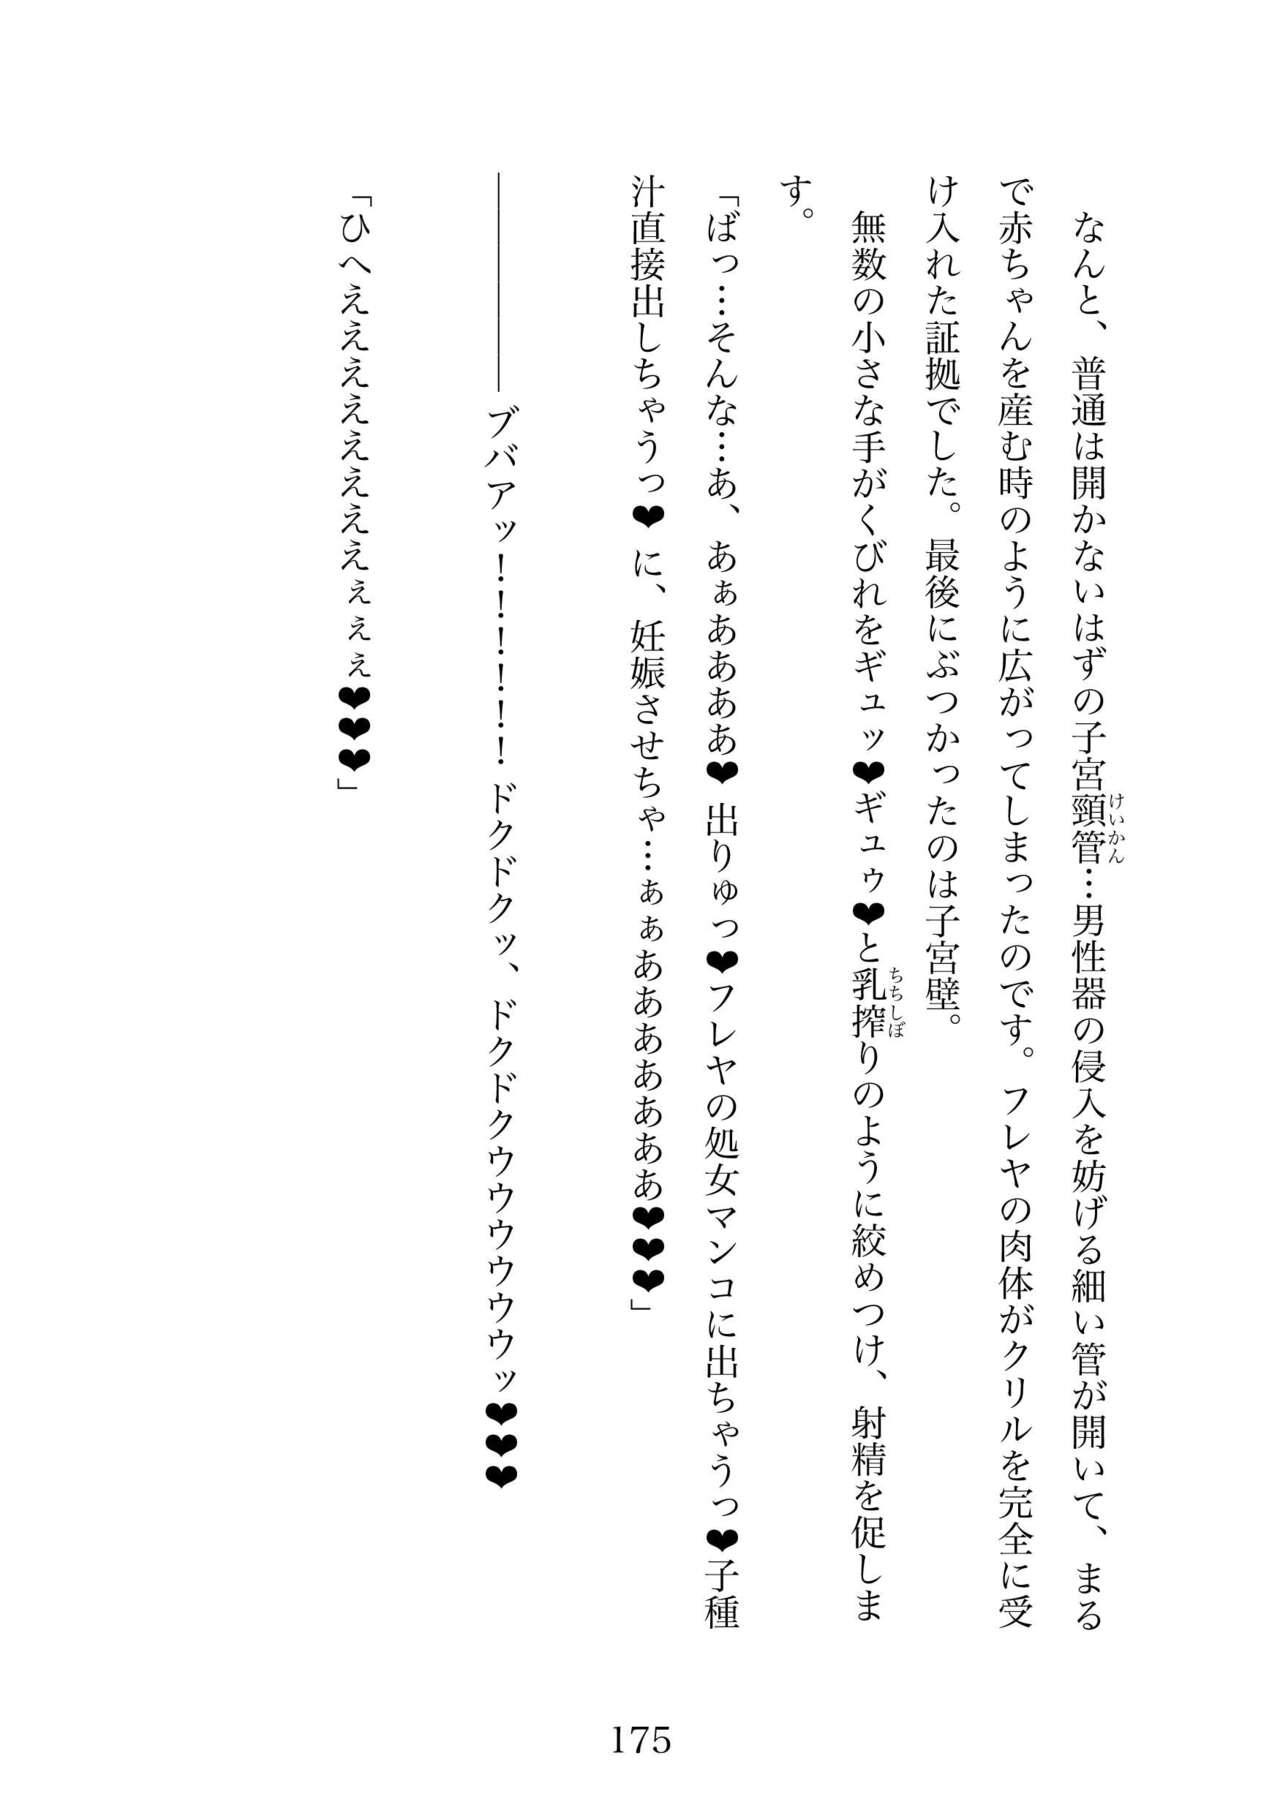 なんと、普通は開かないはずの子宮頸管…男性器の侵入を妨げる細い管が開いて、まる
けいかん
で赤ちゃんを産む時のように広がってしまったのです。フレヤの肉体がクリルを完全に受
け入れた証拠でした。最後にぶつかったのは子宮壁。
無数の小さな手がくびれをギュッ❤ギュゥ❤と乳搾りのように絞めつけ、射精を促しま
ちちしぼ
す。
「ばっ…そんな…あ、あぁああああ❤ 出りゅっ❤フレヤの処女マンコに出ちゃうっ❤子種
汁直接出しちゃうっ❤ に、妊娠させちゃ…ぁぁあああああああ❤❤❤」
――――――ブバアッ！！！！！！ドクドクッ、ドクドクウウウウウウッ❤❤❤
「ひへええええええええぇぇぇ❤❤❤」
175